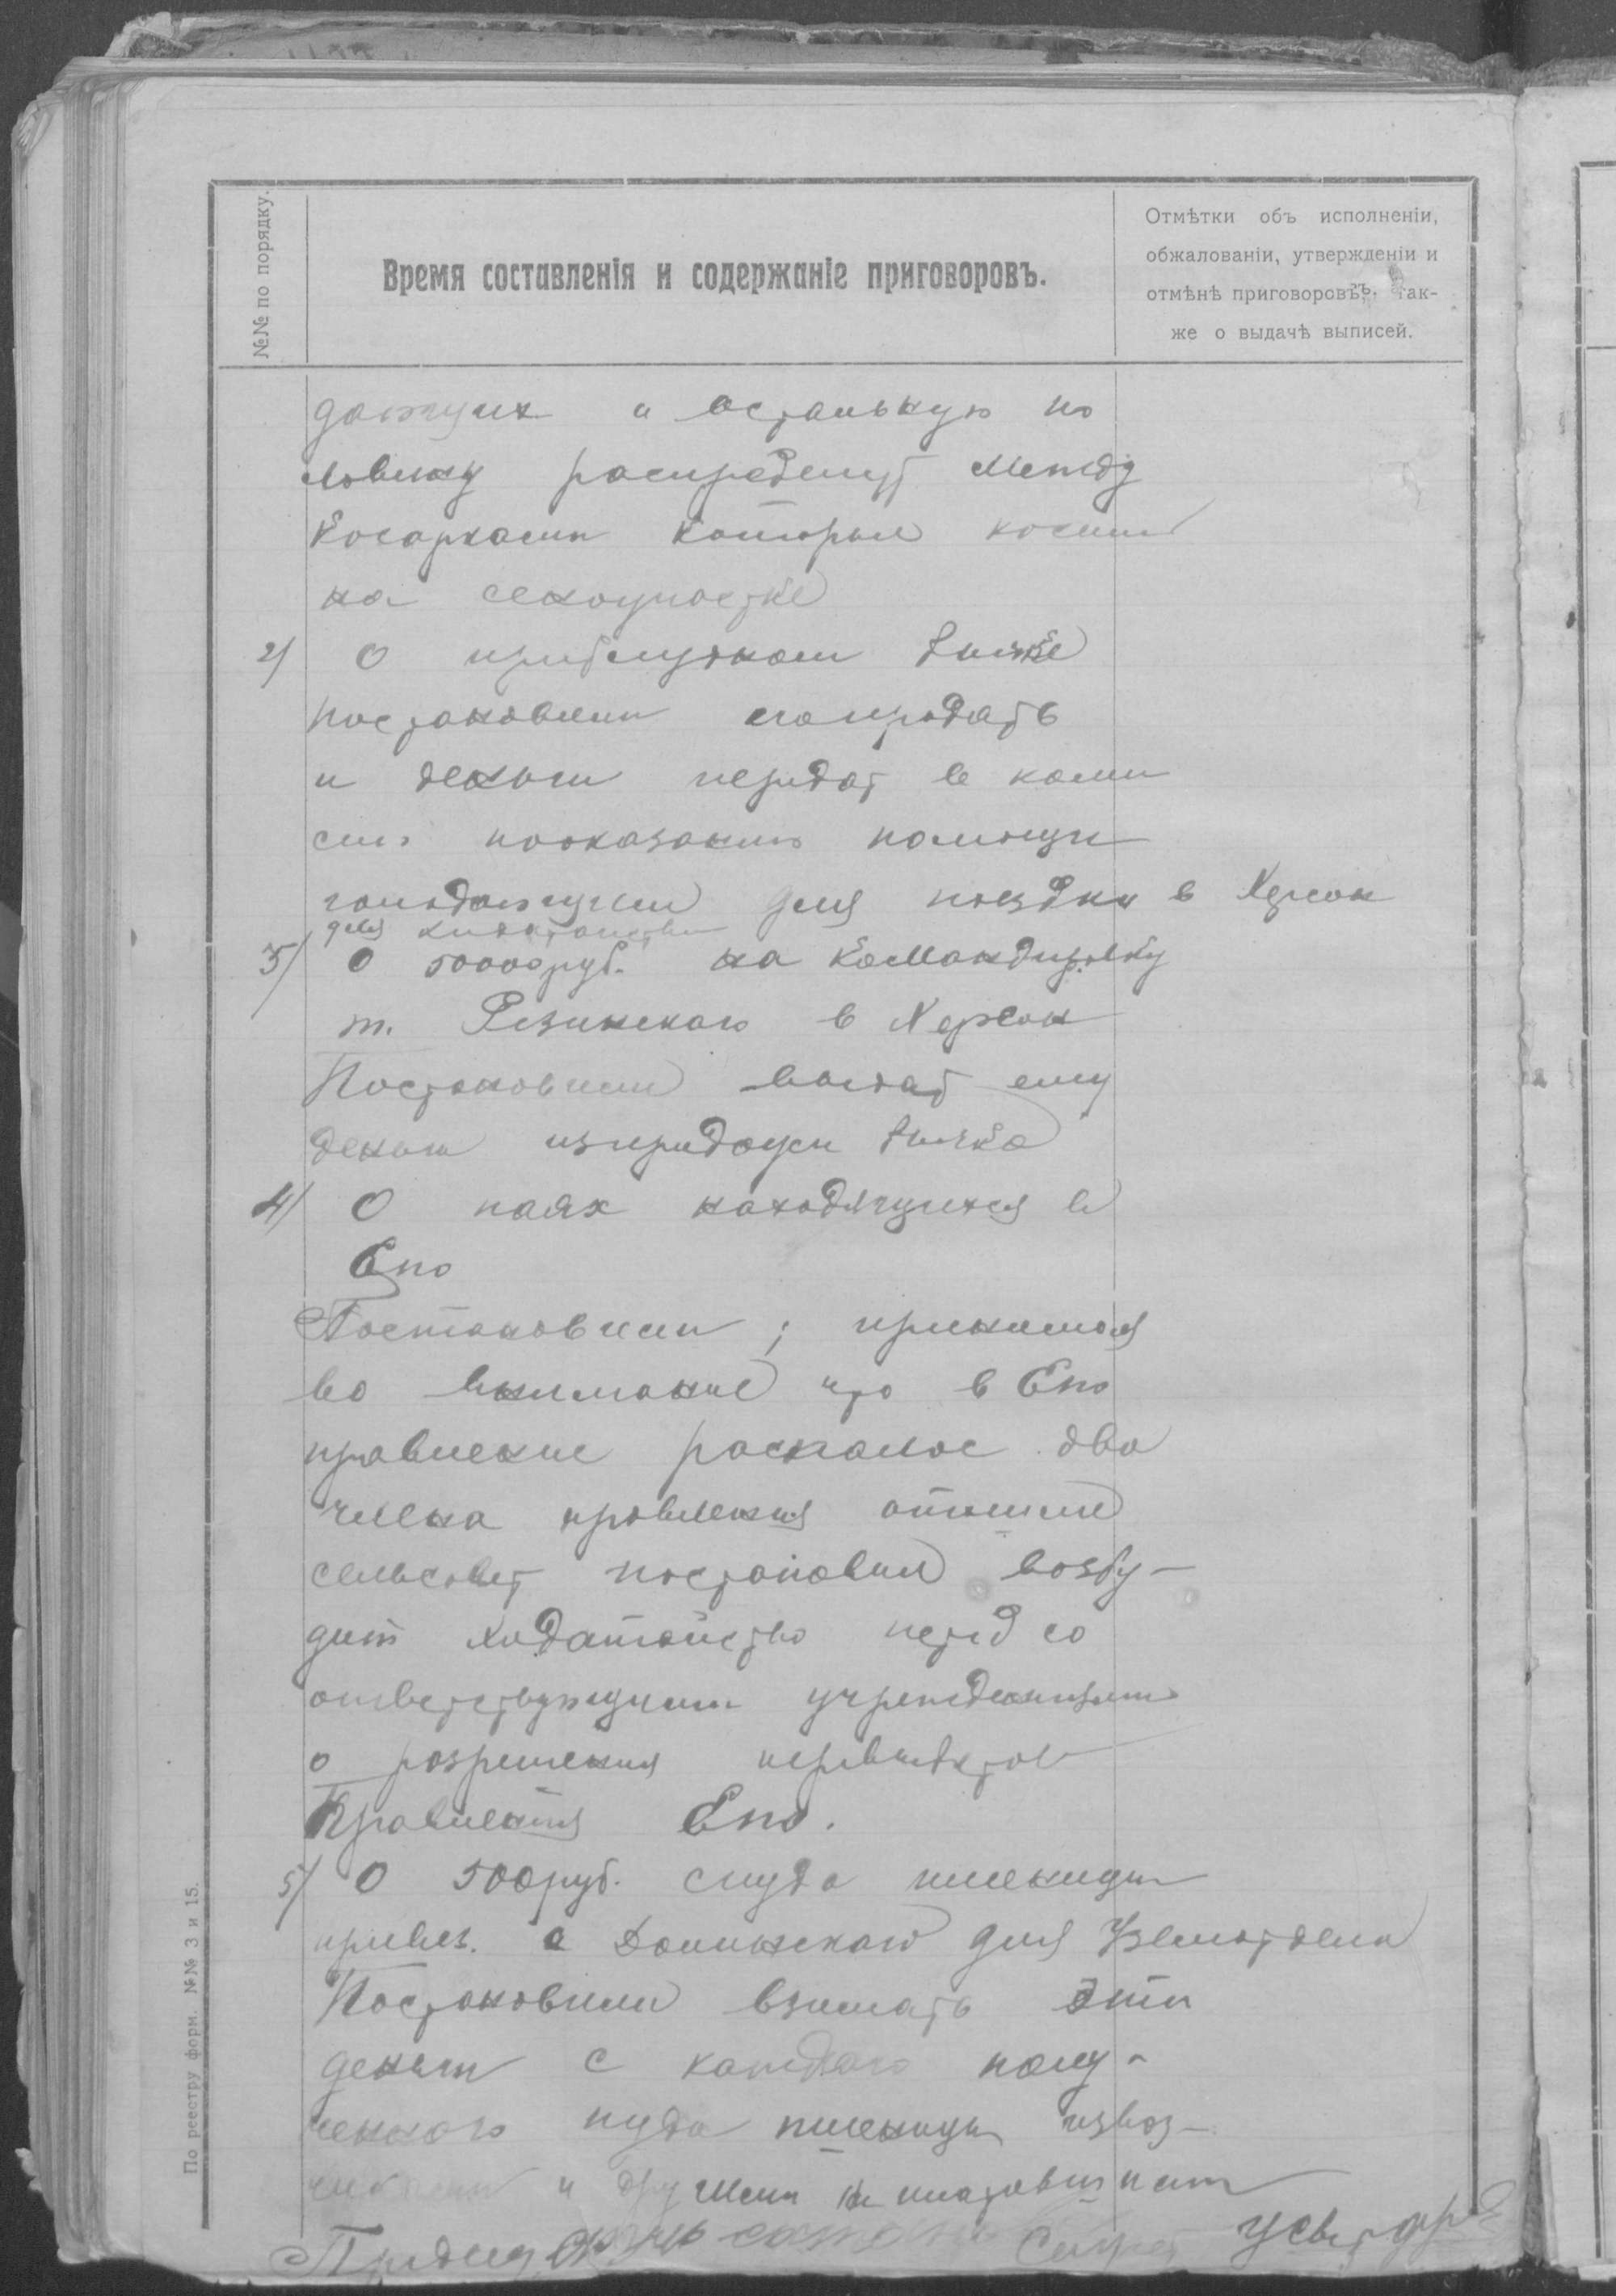 №№ по порядку.
Время составленія и содержаніе приговоровъ.
Отмѣтки объ исполненіи,
обжалованіи, утвержденіи и
отмѣнѣ приговоровъ, так-
же о выдачѣ выписей.
дающих и остальную по
ловину распредилут между
Косарками которые косили
на сеноучастке
2) О приблудном бычке
Постановили его продать
и деньги передат в коми
сию пооказанию помощи
голодающим для поездки в Херсон
для ходатайства
3) О 50000 руб. на командировку
т. Резинского в Херсон
Постановили выдат ему
деньги изпродажи бычка
4) О паях находящихся в
Епо
Постановили; принимая
во внимание что в Епо
правление роспалос два
члена правления
сельсовет постановил возбу-
дит ходатайство перед со
ответствующими учреждениями
о розрешения
Правления Епо.
5) О 500 руб. с пуда пшеницы
привез. с Долинского для
Постановили взимать эти
деньги с каждого полу-
ченного пуда пшеницы извоз-
и другими
Председ Секрет
По реестру форм. №№ 3 и 15.